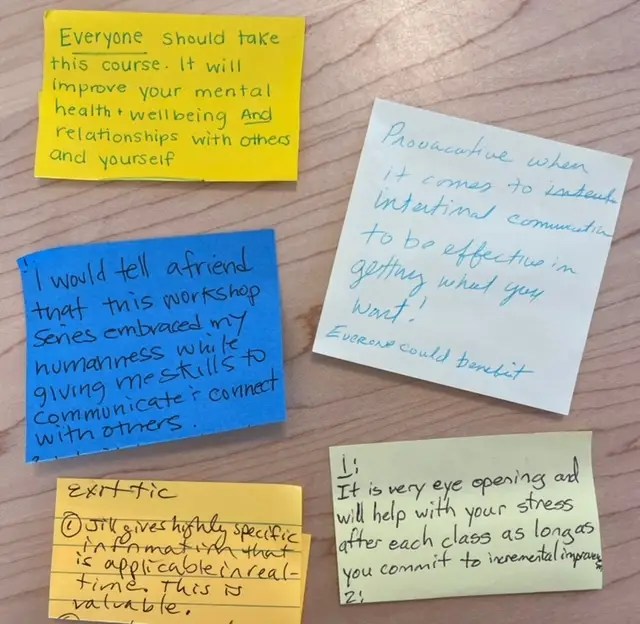 Everyone should take
this course. It will
improve your mental
health + wellbeing And
relationships with others
and yourself
Provacative when
it comes to
intertinal comunication
to be effective in
getting what you
want!
Everone could benefit
I would tell a friend
that this workshop
series embraced my
humanness while
giving me skills to
communicate & connect
with others.
1:
It is very eye opening and
will help with your stress
after each class as long as
you commit to incremental
2:
exit tic
① Jill gives highly specific
information that
is applicable in real-
time. This is
valuable.